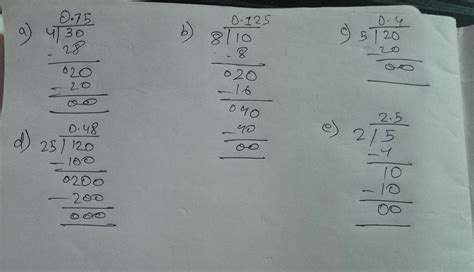 a) 0.75
4 | 30
- 28
020
- 20
00
b) 0.125
8 | 10
- 8
020
- 16
040
- 40
00
c) 0.4
5 | 20
- 20
00
d) 0.48
25 | 120
- 100
0200
- 200
000
e) 2.5
2 | 5
- 4
10
- 10
00